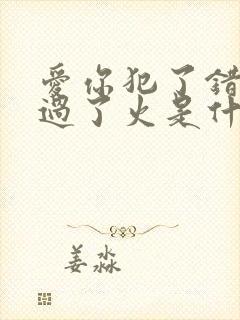 愛你犯了錯
過了火是什
姜淼